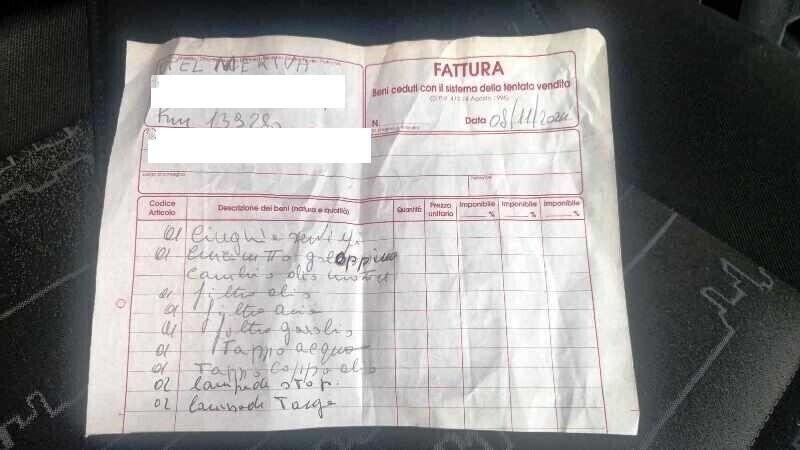 OPEL MERIVA
FATTURA
Beni ceduti con il sistema della tentata vendita
(D.P.R. 472 14 Agosto 1996)
Km 13928
N.
Data 08/11/2024
Luogo di consegna
Codice Articolo
Descrizione dei beni (natura e qualità)
Quantità
Prezzo unitario
Imponibile %
Imponibile %
Imponibile %
01 Cinghia servizi
01 galoppino
Cambio olio motore
01 filtro olio
01 filtro aria
01 filtro gasolio
01 Tappo acqua
01 Tappo Coppa olio
02 lampade stop.
02 lampade Targa